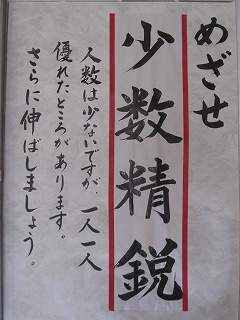 めざせ
少数精鋭
人数は少ないですが、一人一人
優れたところがあります。
さらに伸ばしましょう。